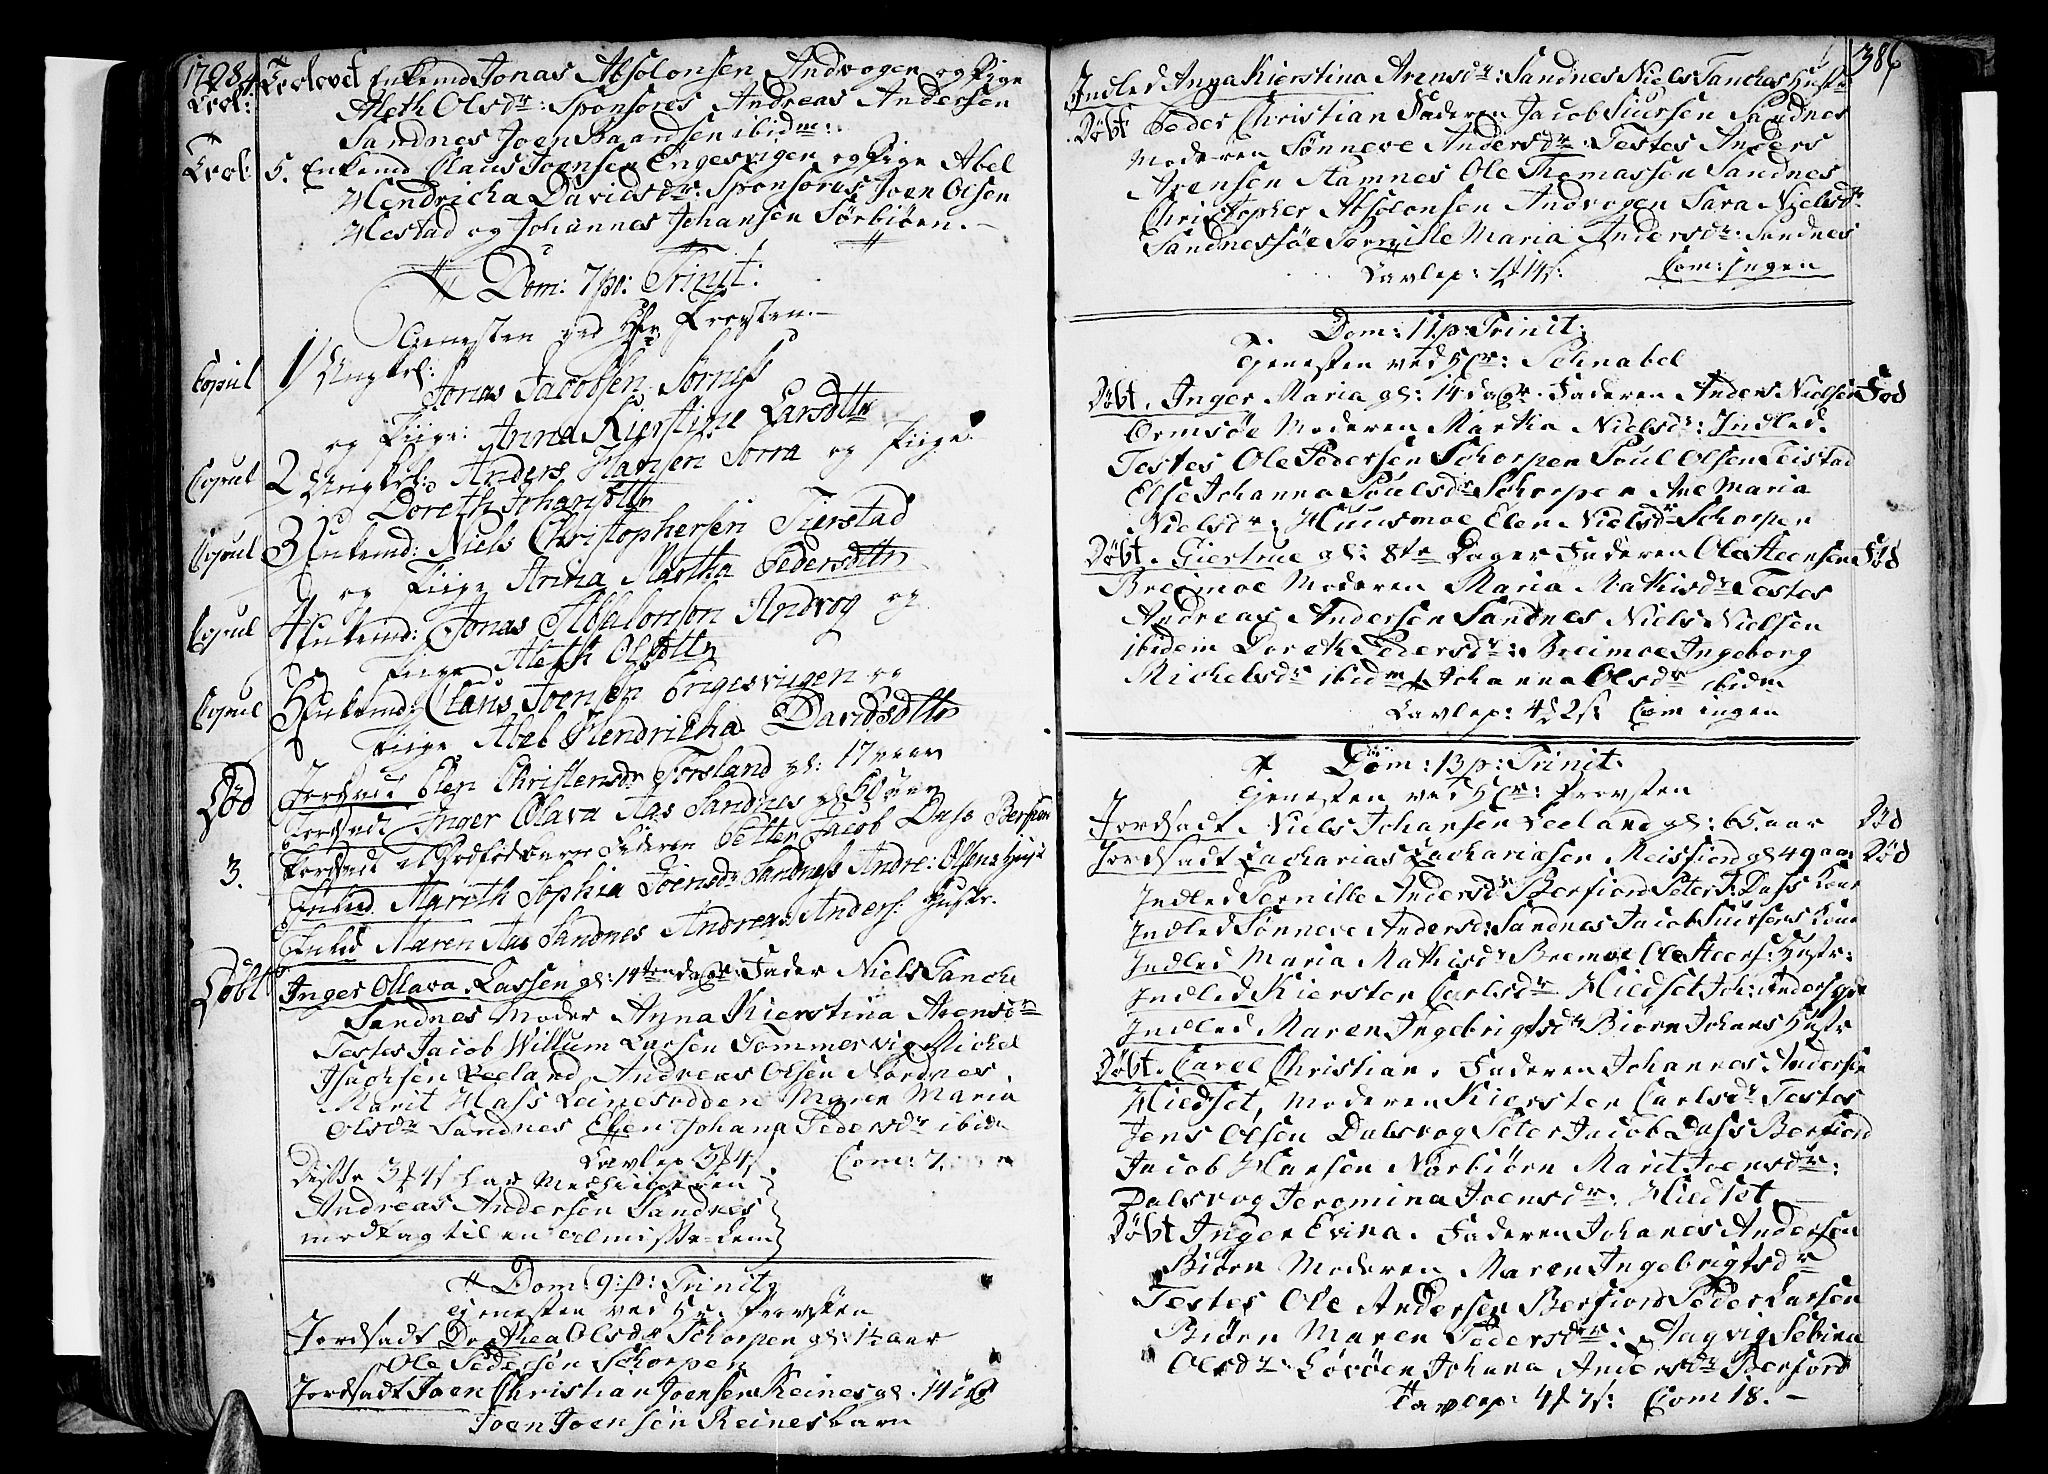 1798
4. Trolovet Enkemd Jonas Absolonsen Andvogen og Pige
Trol:
Aleth Olsdr: Sponsores Andreas Andersen
Sandnes Joen Baardsen ibidm:
Trol: 5. Enkemd Claus Joensen Engesvigen og Pige Abel
Hendricha Davidsdr: Sponsores Joen Olsen
Mestad og Johannes Johansen Sørbiøen.
Dom: 7 po: Trinit:
Tjenesten ved Hr Provsten.
Copul 1 Ungkrl:
Jonas Jacobsen Sørnes
og Piige: Anna Kierstine Larsdttr
Copul 2 Ungkrl: Anders Hansen Sorra og Piige
Doreth Johansdttr
Copul 3 Enkemd: Niels Christophersen Tierstad
og Piige Anna Martha Pedersdttr
Copul 4 Enkemd: Jonas Absalonson Andvog og
Piige Aleth Olsdttr
Copul 5 Enkemd: Claus Joensen Engesviigen og
Piige Abel Hendricha Davidsdttr
Død Jordfæst Elen Christensdr Forsland gl: 17 aar
3.
Jordfæst Inger Olava Aas Sandnes gl:
Jordfæst et Dødfød barn Faderen Petter Jacob Dass Berfiord
Indled Mareth Sophia Joensdr Sandnes Andre: Olsens Hust
Indled Maren Aas Sandnes Andreas Anders: Hustr.
Døbt Inger Ollava Lassen gl: 14ten dage Fader Niels Tanche
Sandnes Moder Anna Kierstina Arensdr
Testes Jacob Willum Larsen Tommervig Michel
Isachsen Leeland Andreas Olsen Nordnes
Marit Hass Leinesodden Maren Maria
Olsdr Sandnes Ellen Johana Pedersdr ibidm
Tavlep 3 4 Com: 7.
Disse 3 4 har Medhielperen
Andreas Andersen Sandnes
modtag til en almisse-Lem
Dom: 9: p: Trinit
Tjenesten ved Hr. Provsten
Jordfæst Dorthea Olsdr Schorpen gl: 1½ aar
Ole Pedersen Schorpen
Jordfæst Joen Christian Joensen Reines gl: 14 Uger
Joen Joensen Reines barn
386
Indled Anna Kierstina Arensdr: Sandnes Niels Tanches Hustr
Døbt Peder Christian Faderen Jacob Siursen Sandnes
Moderen Sønneve Andersdr Testes Anders
Arensen Stamnes Ole Thomassen Sandnes
Christopher Absolonsen Andvogen Sara Nielsdr
Sandnessøe Pernille Maria Andersdr: Sandnes
Tavlep: 1 14 s: Com: ingen
Dom: 11 p: Trinit:
Tjenesten ved Hr: Schnabel
Døbt. Inger Maria gl: 14 dage Faderen Anders Nielsen Fød
Ormsøe Moderen Martha Nielsdr: Indled.
Testes Ole Pedersen Schorpen Poul Olsen Teistad
Else Johanna Poulsdr Schorpen Ane Maria
Nielsdr: Huusmoe Elen Nielsdr Schorpen
Døbt. Giertrue gl: 8te Dager Faderen Ole Steensen Fød
Breimoe Moderen Maria Mathisdr Testes
Andreas Andersen Sandnes Niels Nielsen
ibidem Doreth Pedersdr: Breimoe Ingeborg
Michelsdr ibidm Johanna Olsdr ibidm
Tavlep: 4 2 s: Com ingen
Dom: 13 p: Trinit:
Tjenesten ved Hr: Provsten
Jordfæst Niels Johansen Leeland gl: 65 aar Død
Jordfæst Zacharias Zachariasen Meisfiord gl 49 aar Død
Indled Pernille Andersdr Berfiord Peter J: Dass Kone
Indled Sønneve Andersd: Sandnes Jacob Siursens Kone
Indled Maria Mathisdr Bremoe Ole Steens: Hustr:
Indled Kiersten Carlsdr Hiedset Joh: Anders
Indled Maren Ingebrigtsdr Biørn Johans Hustr
Døbt. Carel Christian. Faderen Johannes Andersen
Hiedset, Moderen Kiersten Carlsdr Testes
Jens Olsen Dalsvog Peter Jacob Dass Berfiord
Jacob Hansen Norbiørn Marit Joensdr:
Dalsvog Jeromina Joensdr: Hiedset
Døbt Inger Evina. Faderen Johanes Andersen
Biørn Moderen Maren Ingebrigtsdr
Testes Ole Andersen Berfiord Peder Larsen
Biørn Maren Pedersdr: Aagvig Sebina
Olsdr Løvøen Johana Andersdr Berfiord
Tavlep: 4 7 s: Com 18.